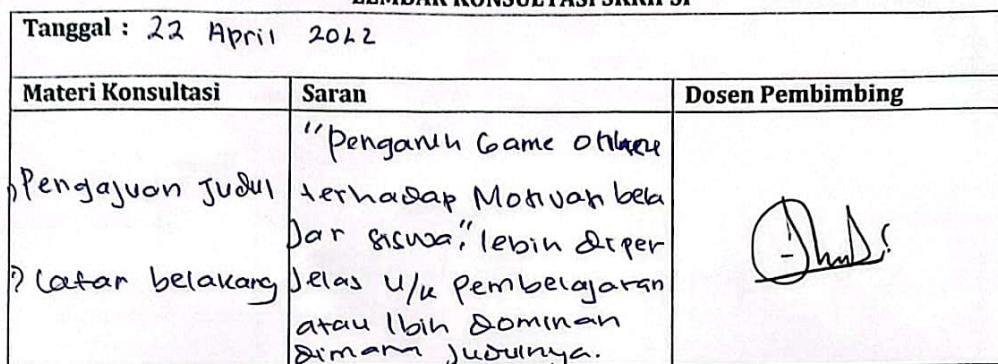 LEMBAR KONSULTASI SKRIPSI
Tanggal : 22 April 2022
Materi Konsultasi
Saran
Dosen Pembimbing
Pengajuan Judul
Latar belakang
"Pengaruh Game Online
terhadap Motivasi bela
jar siswa", lebih diper
jelas u/k pembelajaran
atau lbih dominan
dimana judulnya.